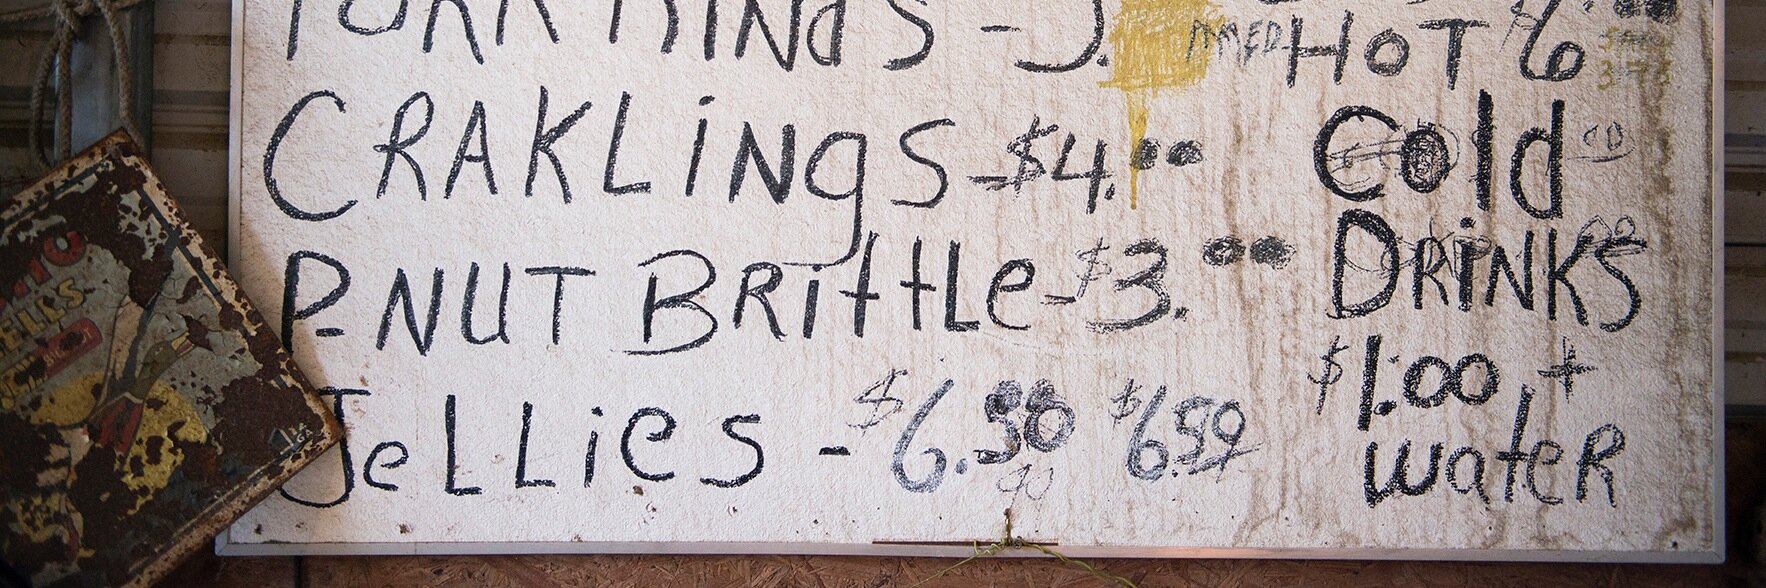 PORK RINDS - 3.
CRAKLINgS - $4.00
P-NUT BRittLe - $3.00
JeLLies - $6.50 $6.50
HOT $6.00
Cold
DRiNKS
$1.00 +
wateR